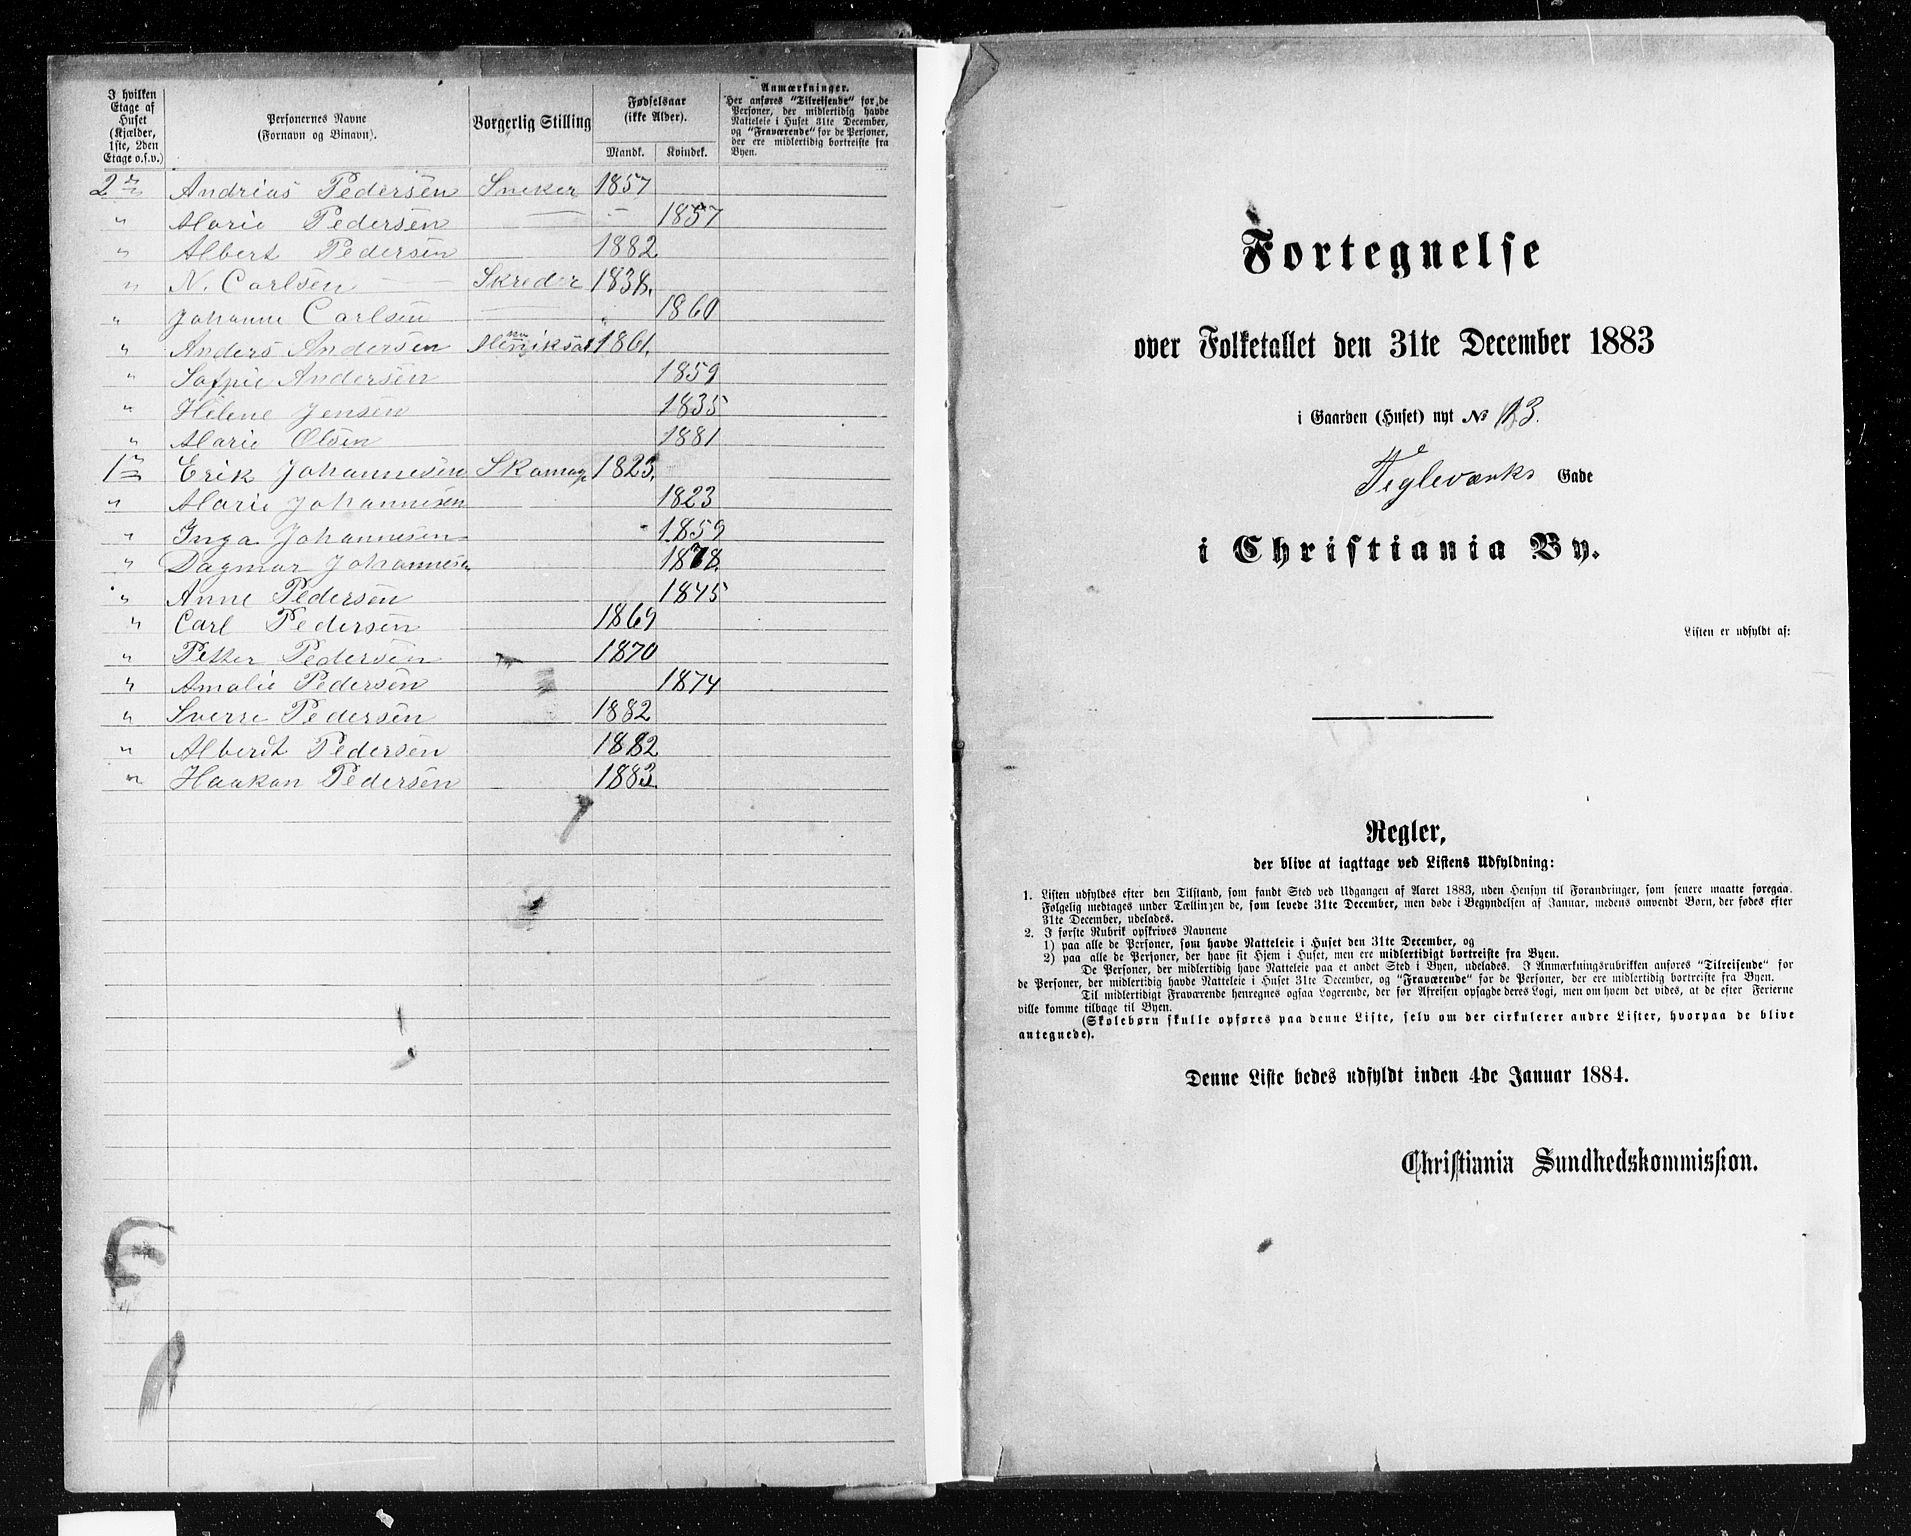 I hvilken Etage af Huset (Kjælder, 1ste, 2den Etage o.s.v.) Personernes Navne (Fornavn og Binavn). Borgerlig Stilling Fødselsaar (ikke Alder). Mandk. Kvindek. Anmærkninger. Her anføres "Tilreisende" for de Personer, der midlertidig havde Natteleie i Huset 31te December, og "Fraværende" for de Personer, der ere midlertidig bortreiste fra Byen.
2 Andrias Pedersen Sneker 1857
" Marie Pedersen — – 1857
" Albert Pedersen 1882
" N. Carlsen — Skreder 1838.
" Johanne Carlsen — 1860
" Anders Andersen 1861.
" Sofpie Andersen 1859
" Helene Jensen 1835
" Marie Olsen 1881
1 Erik Johannesen Skomag 1823.
" Marie Johannesen 1823
" Inga Johannesen 1859
" Dagmar Johannesen 1878.
" Anne Pedersen 1845
" Carl Pedersen 1869
" Petter Pedersen 1870
" Amalie Pedersen 1874
" Sverre Pedersen 1882
" Alberdt Pedersen 1882
" Haakon Pedersen 1883.
Fortegnelse
over Folketallet den 31te December 1883
i Gaarden (Huset) nyt № 13.
Tegleværks Gade
i Christiania By.
Listen er udfyldt af:
Regler,
der blive at iagttage ved Listens Udfyldning:
1. Listen udfyldes efter den Tilstand, som fandt Sted ved Udgangen af Aaret 1883, uden Hensyn til Forandringer, som senere maatte foregaa.
Følgelig medtages under Tællingen de, som levede 31te December, men døde i Begyndelsen af Januar, medens omvendt Børn, der fødes efter
31te December, udelades.
2. I første Rubrik opskrives Navnene
1) paa alle de Personer, som havde Natteleie i Huset den 31te December, og
2) paa alle de Personer, der have sit Hjem i Huset, men ere midlertidigt bortreiste fra Byen.
De Personer, der midlertidig have Natteleie paa et andet Sted i Byen, udelades. I Anmærkningsrubrikken anføres "Tilreisende" for
de Personer, der midlertidig havde Natteleie i Huset 31te December, og "Fraværende" for de Personer, der ere midlertidig bortreiste fra Byen.
Til midlertidigt Fraværende henregnes ogsaa Logerende, der før Afreisen opsagde deres Logi, men om hvem det vides, at de efter Ferierne
ville komme tilbage til Byen.
(Skolebørn skulle opføres paa denne Liste, selv om der cirkulerer andre Lister, hvorpaa de blive
antegnede).
Denne Liste bedes udfyldt inden 4de Januar 1884.
Christiania Sundhedskommission.